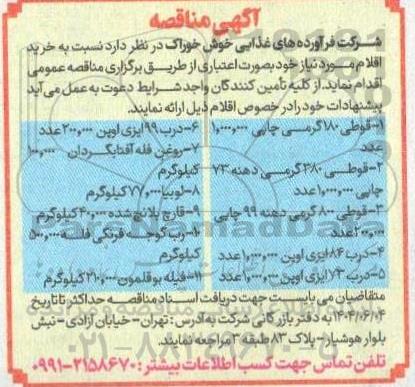 آگهی مناقصه
شرکت فرآورده های غذایی خوش خوراک در نظر دارد نسبت به خرید
اقلام مورد نیاز خود بصورت اعتباری از طریق برگزاری مناقصه عمومی
اقدام نماید. از کلیه تأمین کنندگان واجد شرایط دعوت به عمل می آید
پیشنهادات خود را در خصوص اقلام ذیل ارائه نمایند.
۱-قوطی ۱۸۰ گرمی چاپی ۱,۰۰۰,۰۰۰
عدد
۲-قوطی ۳۸۰ گرمی دهنه ۷۳
چاپی ۱,۰۰۰,۰۰۰ عدد
۳-قوطی ۸۰۰ گرمی دهنه ۹۹ چاپی
۲۰۰,۰۰۰ عدد
۴-درب ۸۴ ایزی اوپن ۱,۰۰۰,۰۰۰ عدد
۵-درب ۷۳ ایزی اوپن ۱,۰۰۰,۰۰۰ عدد
۶-درب ۹۹ ایزی اوپن ۲۰۰,۰۰۰ عدد
۷-روغن فله آفتابگردان ۱۰۰,۰۰۰
کیلوگرم
۸-لوبیا ۷۷,۰۰۰ کیلوگرم
۹-قارچ بلانچ شده ۴۰,۰۰۰ کیلوگرم
۱۰-رب گوجه فرنگی فله ۵۰۰,۰۰۰
کیلوگرم
۱۱-فیله بوقلمون ۲۱۰,۰۰۰ کیلوگرم
متقاضیان می بایست جهت دریافت اسناد مناقصه حداکثر تا تاریخ
۱۴۰۴/۰۶/۰۴ به دفتر بازرگانی شرکت به آدرس: تهران-خیابان آزادی-نبش
بلوار هوشیار-پلاک ۸۳ طبقه ۲ مراجعه نمایند.
تلفن تماس جهت کسب اطلاعات بیشتر: ۲۱۵۸۶۷۰-۰۹۹۱